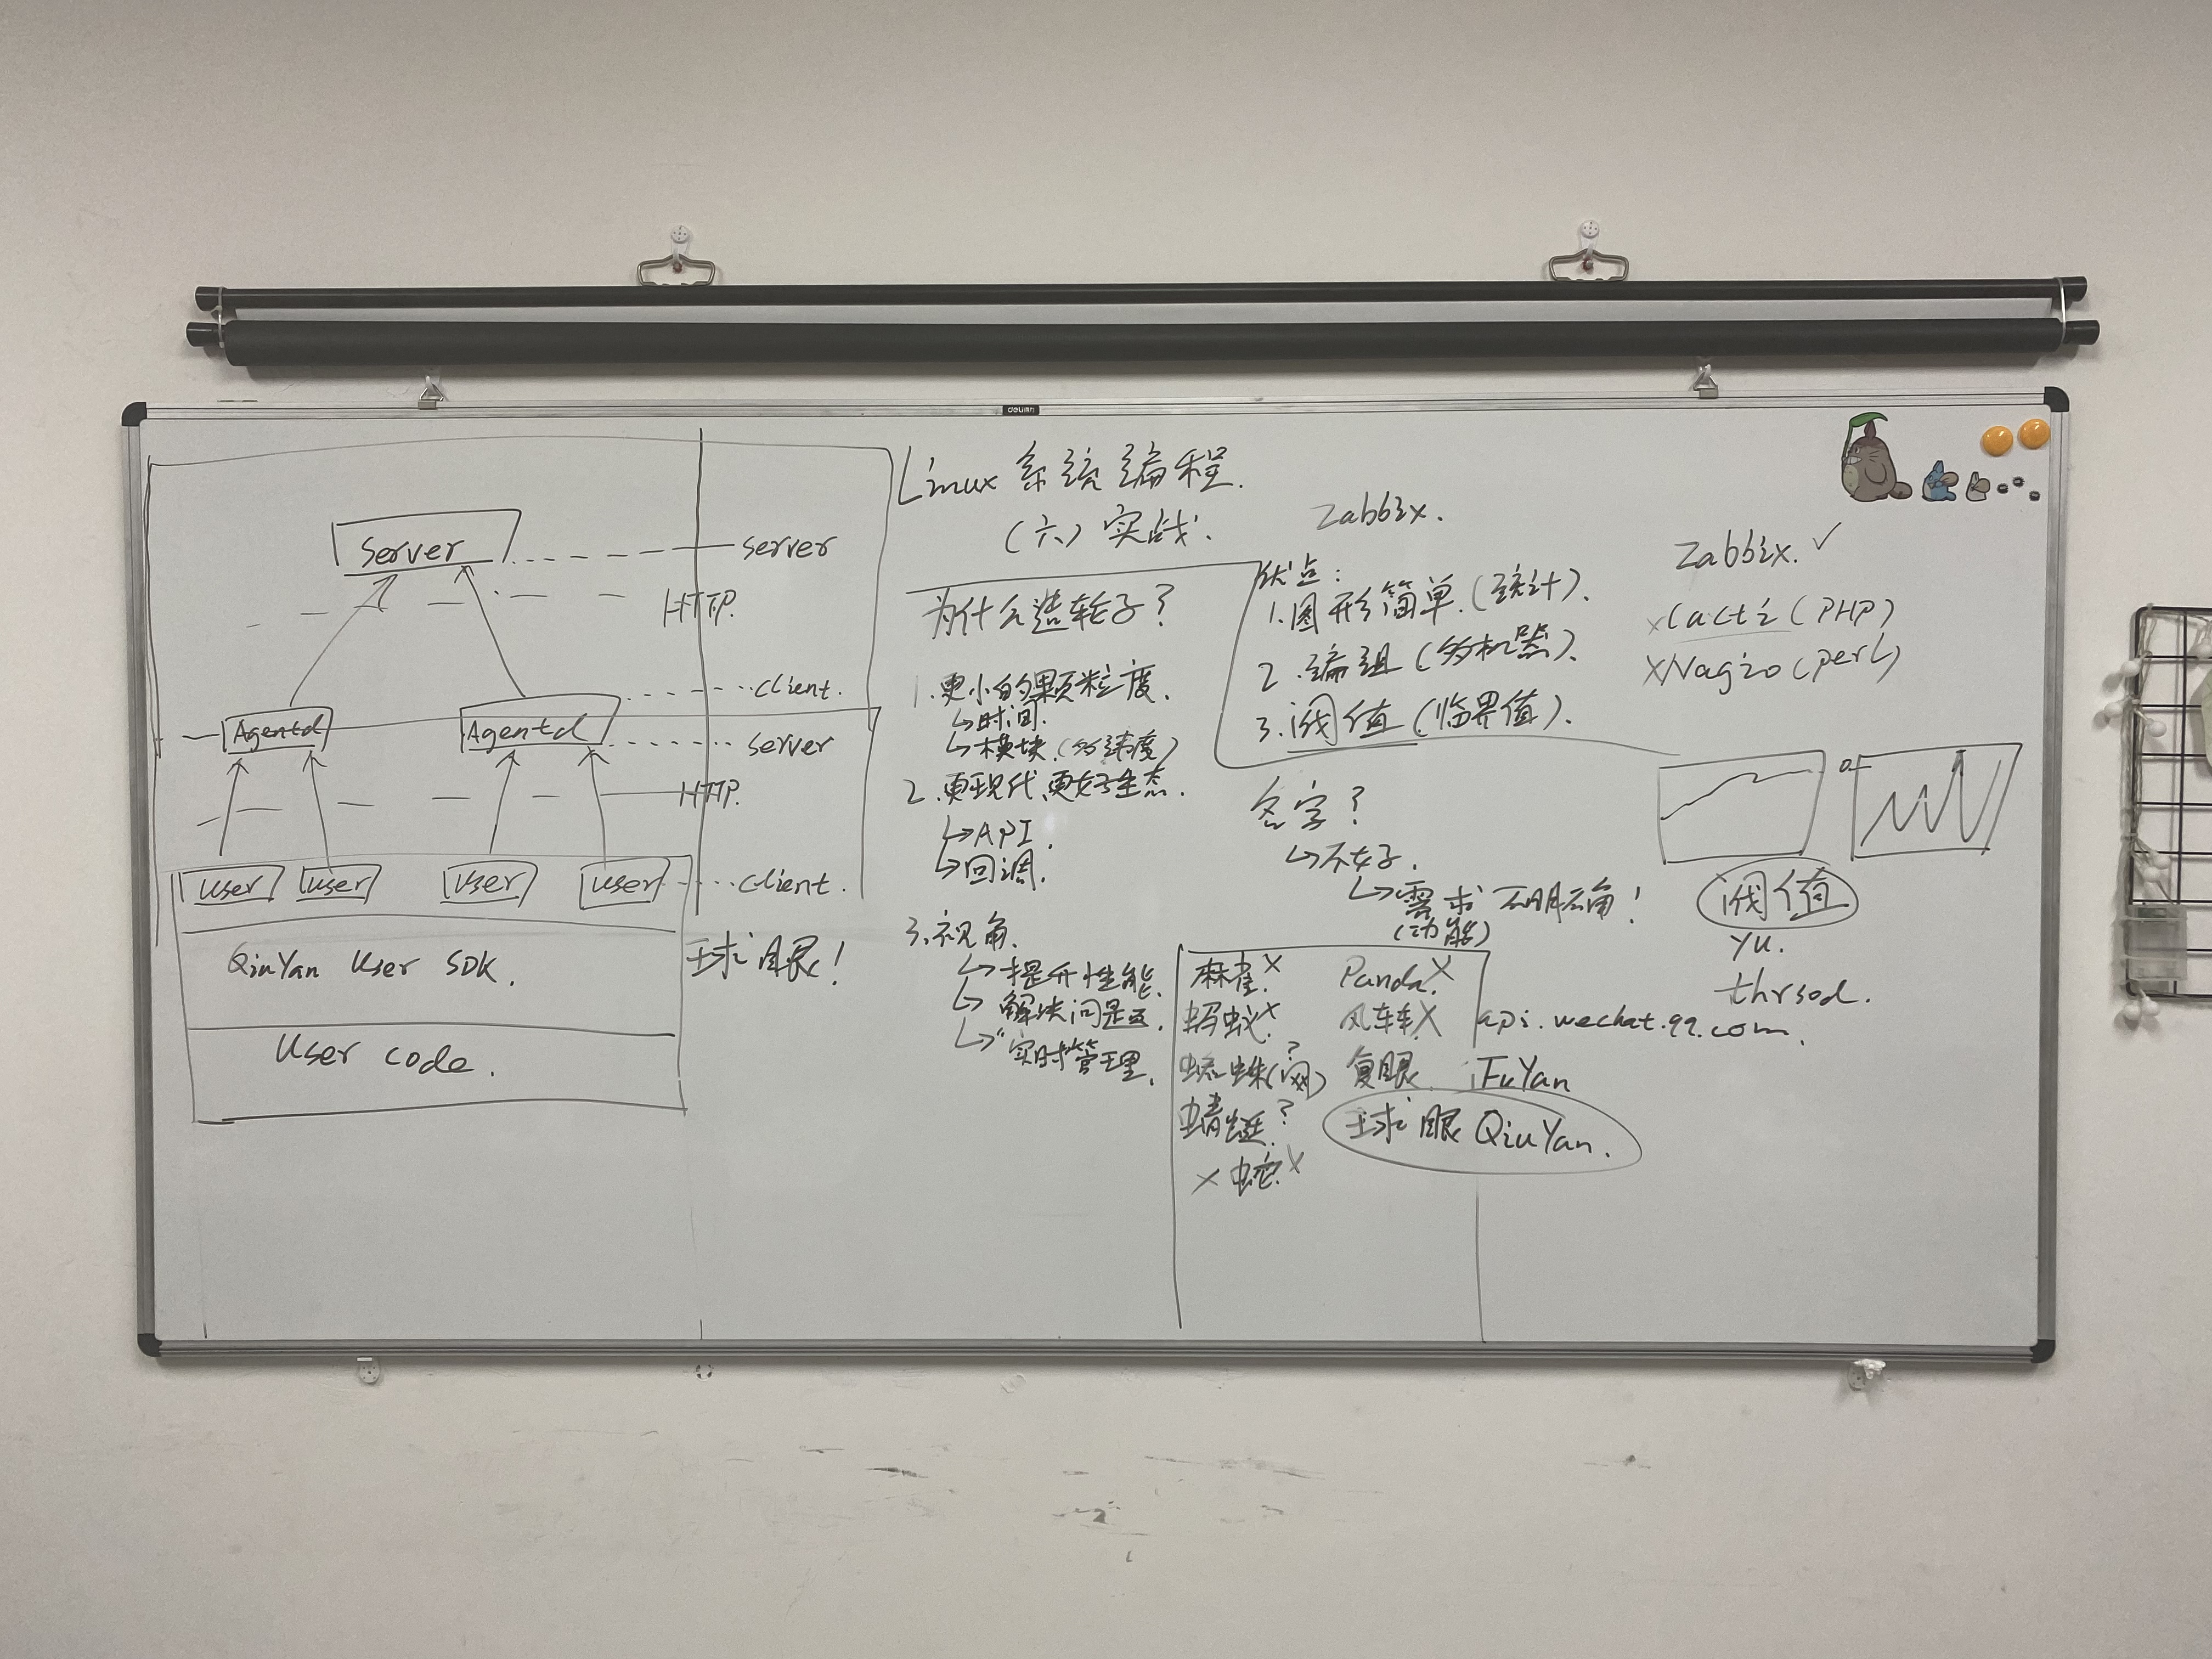 deli
Server
server
HTTP.
client.
Agentd
Agentd
server
HTTP.
user
user
user
user
client.
QiuYan User SDK.
球眼!
User code.
Linux 系统编程.
(六)实战.
为什么造轮子?
1.更小的颗粒度.
↳时间.
↳模块.(多纬度)
2.更现代,更好生态.
↳API.
↳回调.
3.视角.
↳提升性能.
↳解决问题.
↳实时管理.
Zabbix.
优点:
1.图形简单.(统计).
2.编组(多机器).
3.阈值(临界值).
名字?
↳不好.
↳需求不明确!
(功能)
麻雀.X
Panda.X
蚂蚁.X
风车车X
蜘蛛(网)?
复眼. iFuYan
蜻蜓.?
球眼 QiuYan.
X 蛇.X
Zabbix.✓
xCacti(PHP)
XNagio(perl)
0
阈值
yu.
thrsod.
api.wechat.qq.com.